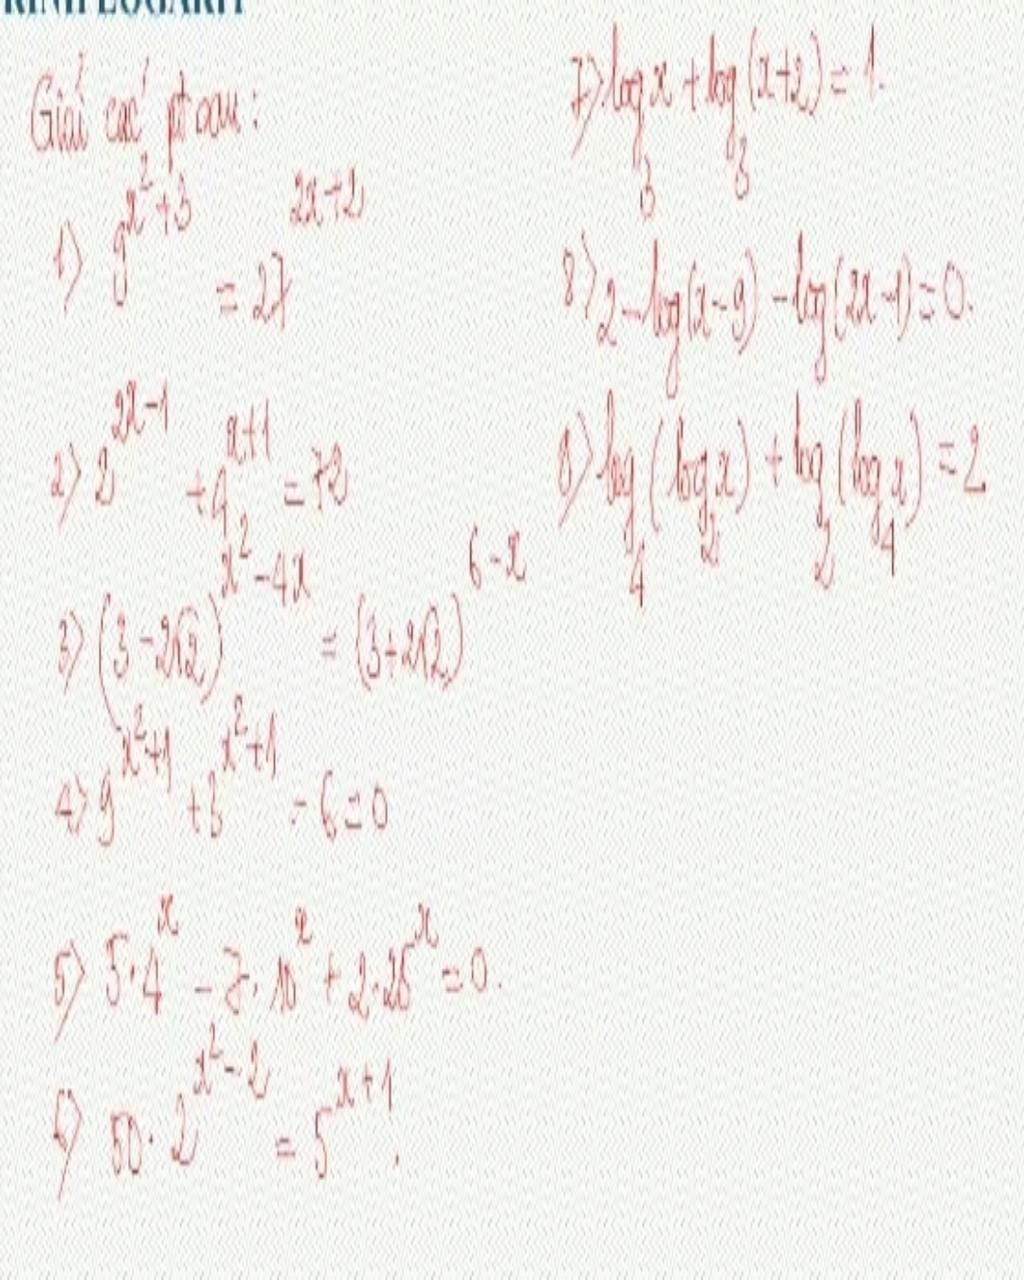 Giải các pt sau:
1) 9^{x^2+3} = 27^{2x+2}
2) 2^{2x-1} + 4^{x+1} = 72
3) (3-2√2)^{x^2-4x} = (3+2√2)^{6-x}
4) 9^{x^2+1} + 3^{x^2+1} - 6 = 0
5) 5·4^x - 7·10^x + 2·25^x = 0.
6) 50·2^{x^2-2} = 5^{x+1}.
7) log_3 x + log_3 (x+2) = 1.
8) 2 - log(x-9) - log(2x-1) = 0.
9) log_4 (log_2 x) + log_2 (log_4 x) = 2